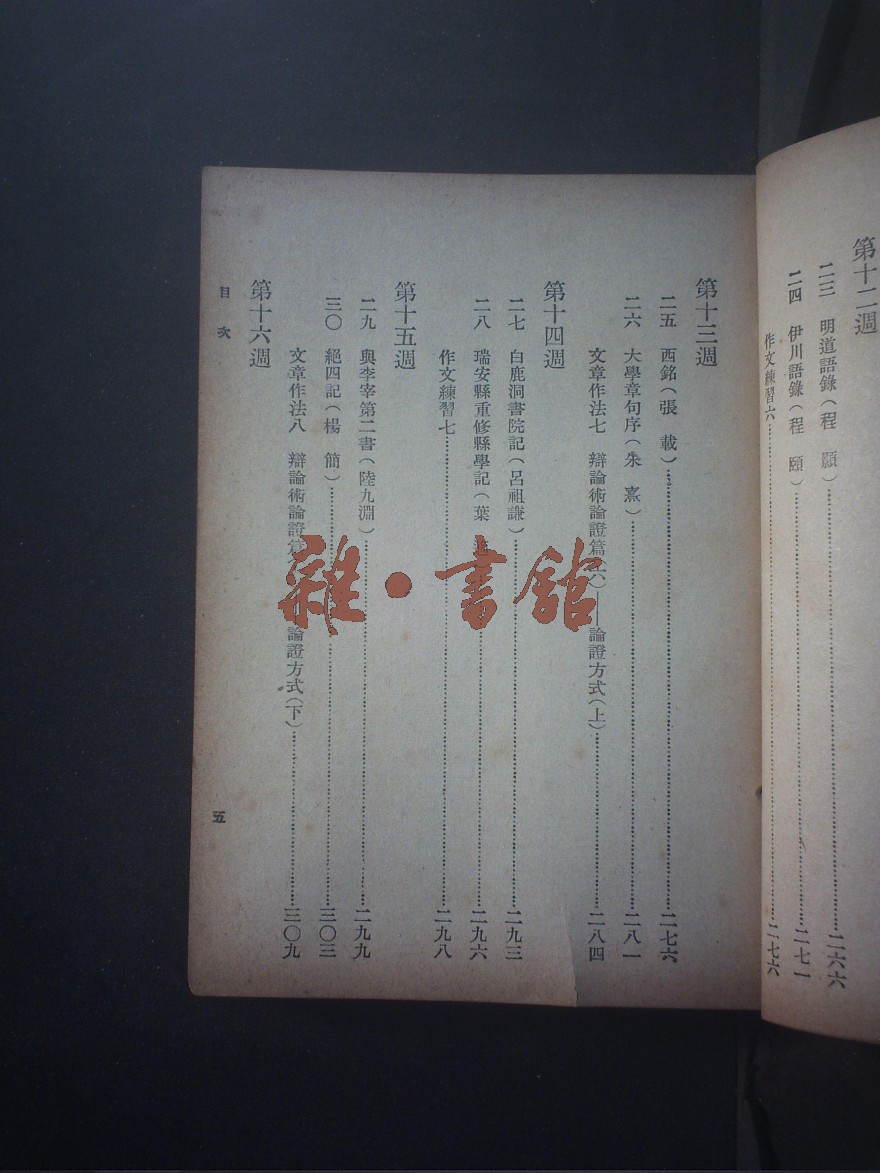 第十二週
二三　明道語錄（程　顥）……二六六
二四　伊川語錄（程　頤）……二七一
作文練習六……二七六
第十三週
二五　西銘（張　載）……二七六
二六　大學章句序（朱　熹）……二八一
文章作法七　辯論術論證篇（六）——論證方式（上）……二八四
第十四週
二七　白鹿洞書院記（呂祖謙）……二九三
二八　瑞安縣重修縣學記（葉……二九六
作文練習七……二九八
第十五週
二九　與李宰第二書（陸九淵）……二九九
三〇　絕四記（楊　簡）……三〇三
文章作法八　辯論術論證篇　論證方式（下）……三〇九
第十六週
目次
五
雜·書館